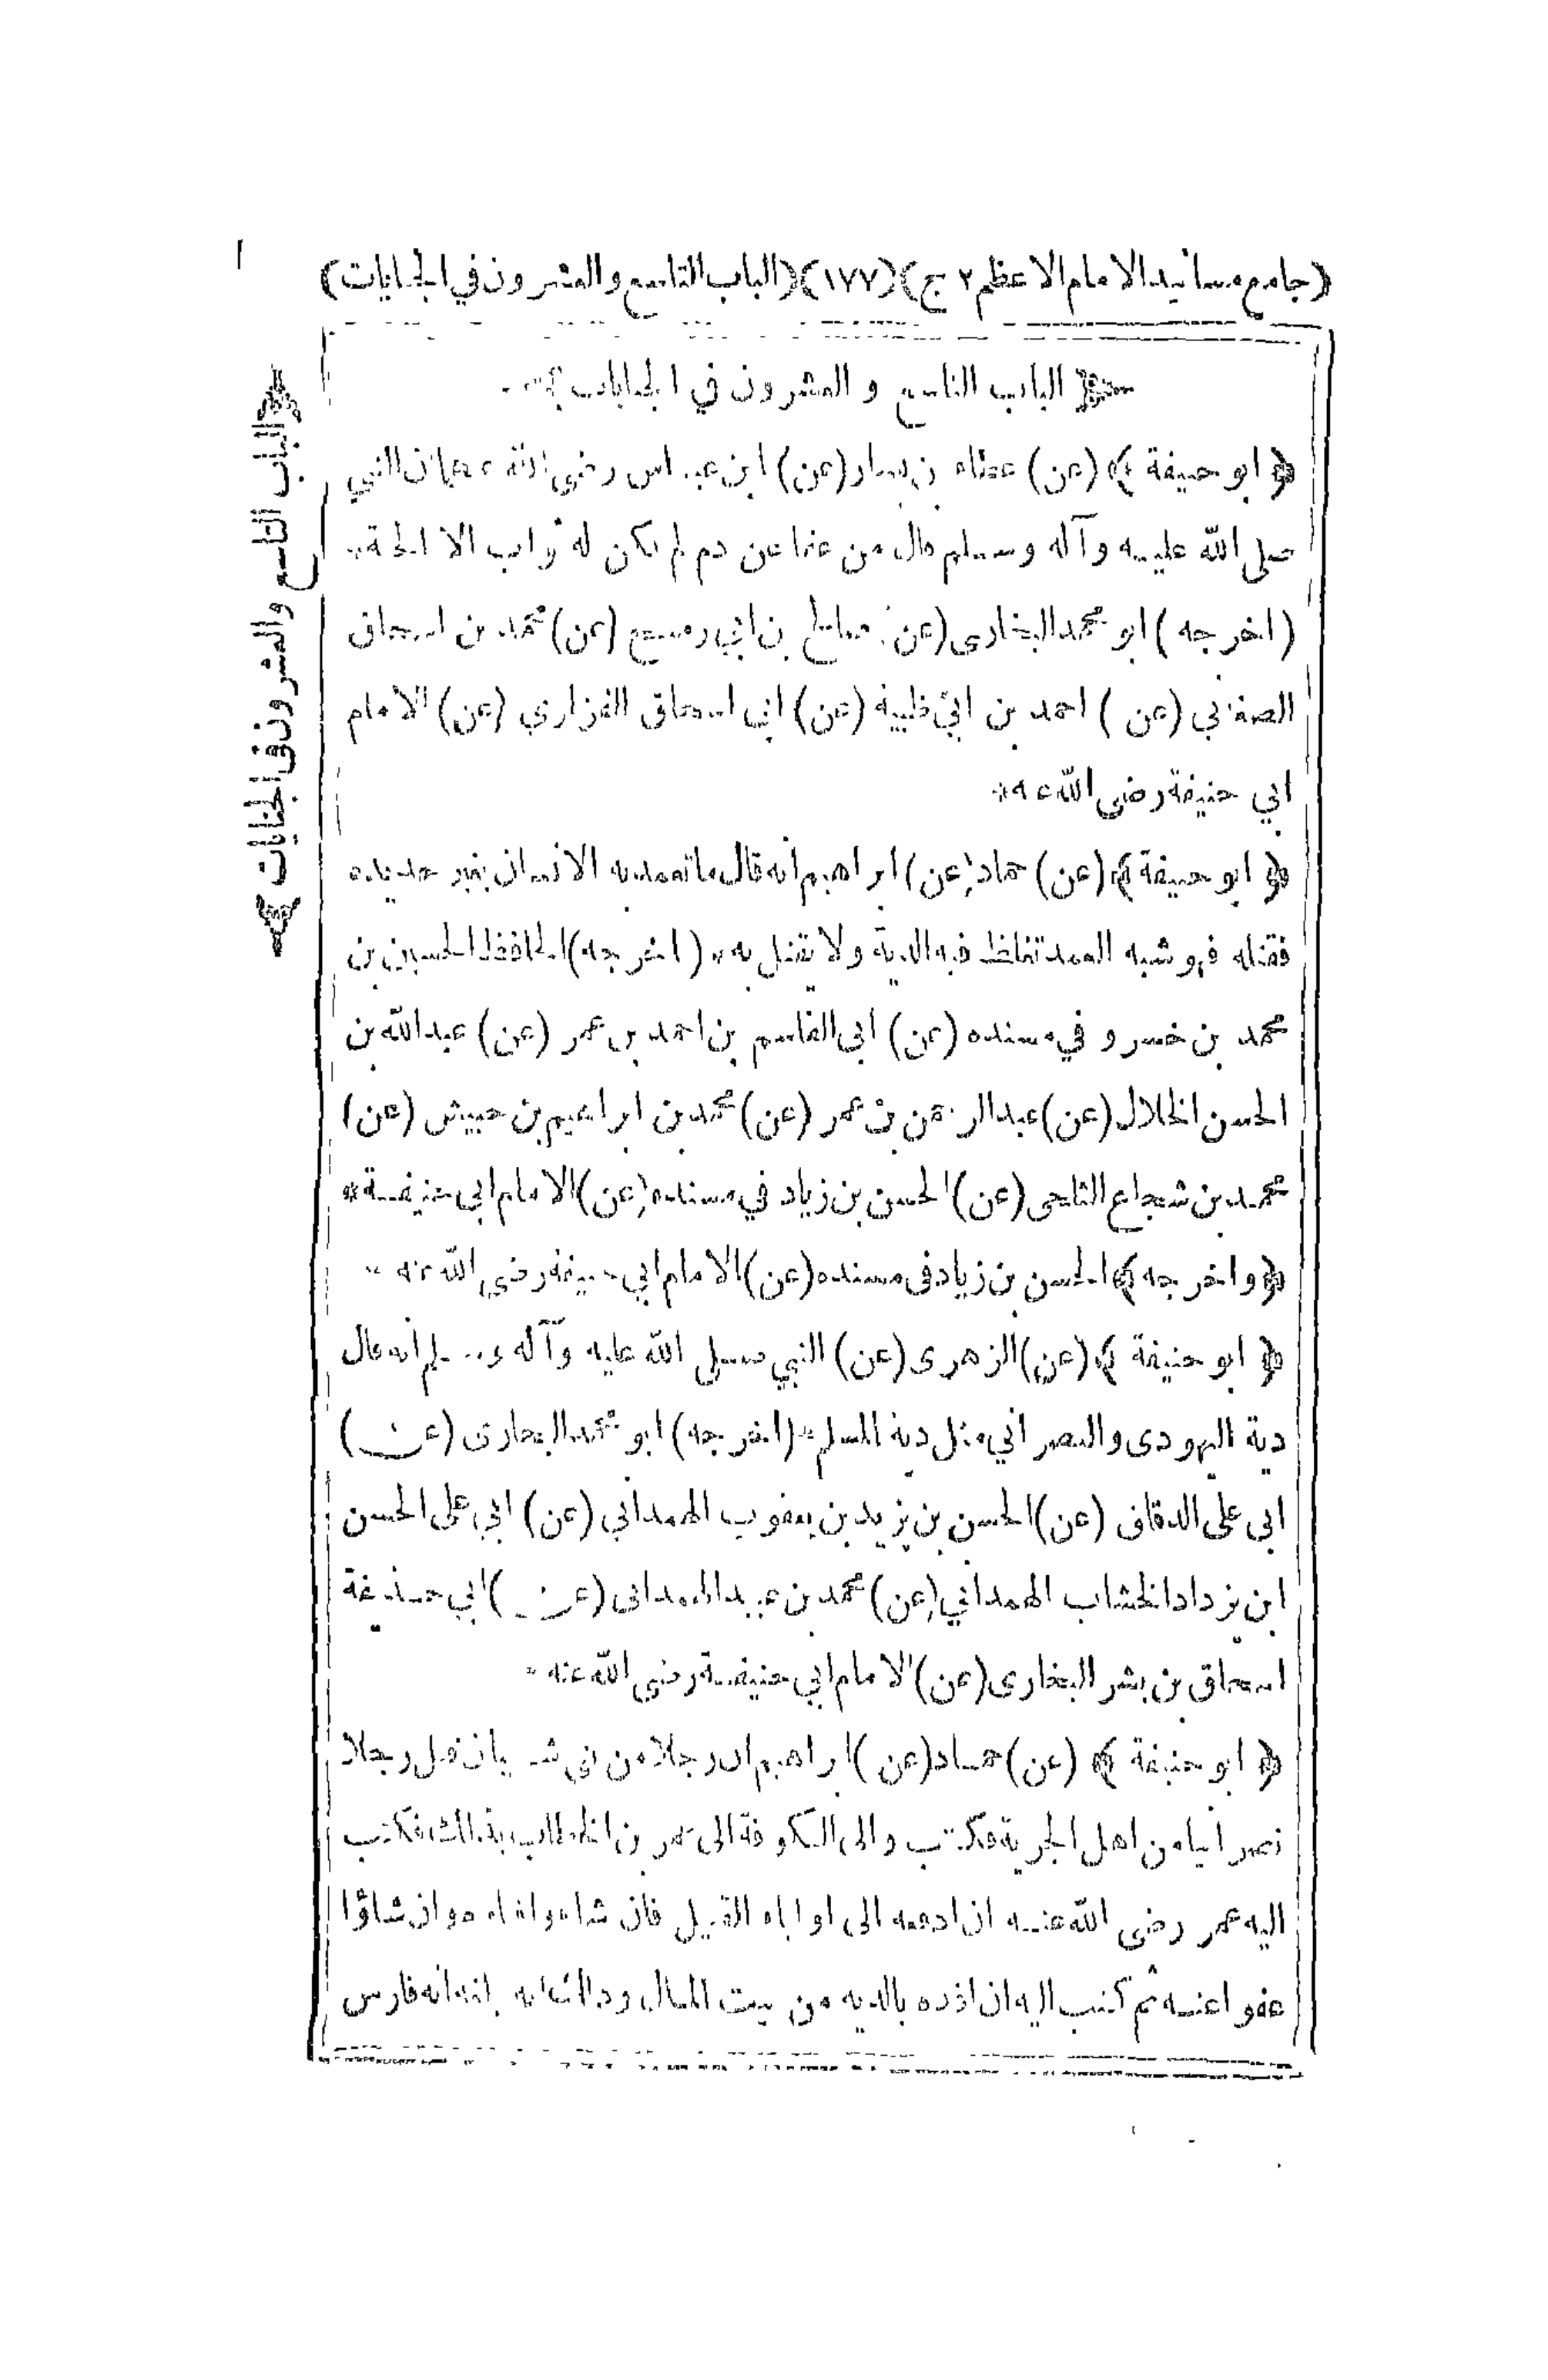 (جامع مسانيد الامام الاعظم ٢ ج) (١٧٧) (الباب التاسع والعشرون في الجنايات)
الباب التاسع والعشرون في الجنايات
﴿ ابو حنيفة ﴾ (عن) عطاء بن يسار (عن) ابن عباس رضي الله عنهما ان النبي
صلى الله عليه وآله وسلم قال من عفا عن دم لم يكن له ثواب الا الجنة*
(اخرجه) ابو محمد البخارى (عن) صالح بن ابي رميح (عن) محمد بن اسحاق
(عن) احمد بن ابي ظبية (عن) ابى اسحاق الفزاري (عن) الامام
ابي حنيفة رضى الله عنه*
﴿ ابو حنيفة ﴾ (عن) حماد (عن) ابراهيم انه قال ما تعمد به الانسان بغير حديدة
فقتله فهو شبه العمد تغلظ فيه الدية ولا يقتل به* (اخرجه) الحافظ الحسين بن
محمد بن خسرو في مسنده (عن) ابى القاسم بن احمد بن عمر (عن) عبد الله بن
الحسن الخلال (عن) عبد الرحمن بن عمر (عن) محمد بن ابراهيم بن حبيش (عن)
محمد بن شجاع الثلجى (عن) الحسن بن زياد في مسنده (عن) الامام ابى حنيفة*
﴿ واخرجه ﴾ الحسن بن زياد فى مسنده (عن) الامام ابي حنيفة رضي الله عنه*
﴿ ابو حنيفة ﴾ (عن) الزهرى (عن) النبي صلى الله عليه وآله وسلم انه قال
دية اليهودى والنصراني مثل دية المسلم* (اخرجه) ابو محمد البخارى (عن)
ابى على الدقاق (عن) الحسن بن يزيد بن يعقوب الهمداني (عن) ابي على الحسن
ابن يزداد الخشاب الهمداني (عن) محمد بن عبيد الهمدانى (عن) ابي حذيفة
اسحاق بن بشر البخارى (عن) الامام ابي حنيفة رضي الله عنه*
﴿ ابو حنيفة ﴾ (عن) حماد (عن) ابراهيم ان رجلا من بني شيبان قتل رجلا
نصرانيا من اهل الجزية فكتب والى الكوفة الى عمر بن الخطاب بذلك فكتب
اليه عمر رضى الله عنه ان ادفعه الى اولياء القتيل فان شاءوا وان شاؤا
عفوا عنه ثم كتب اليه ان افده بالدية من بيت المال وذلك انه بلغه انه فارس
﴿ الباب التاسع والعشرون فى الجنايات ﴾